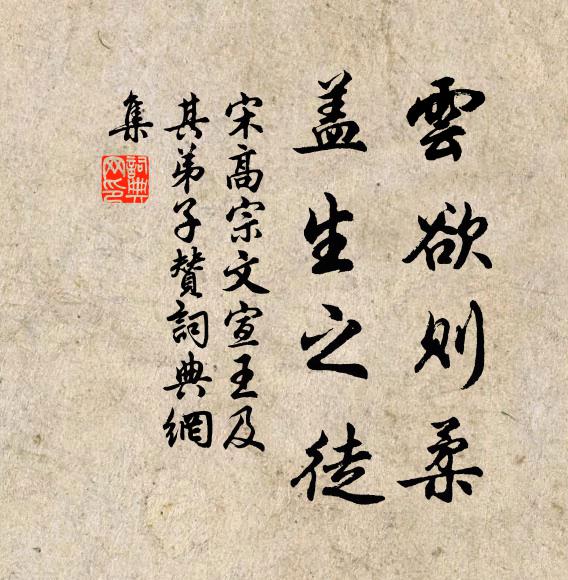 雲欲則柔
盖生之徒
宋高宗文宣王及
其弟子賛詞典網
集
詞典
网印